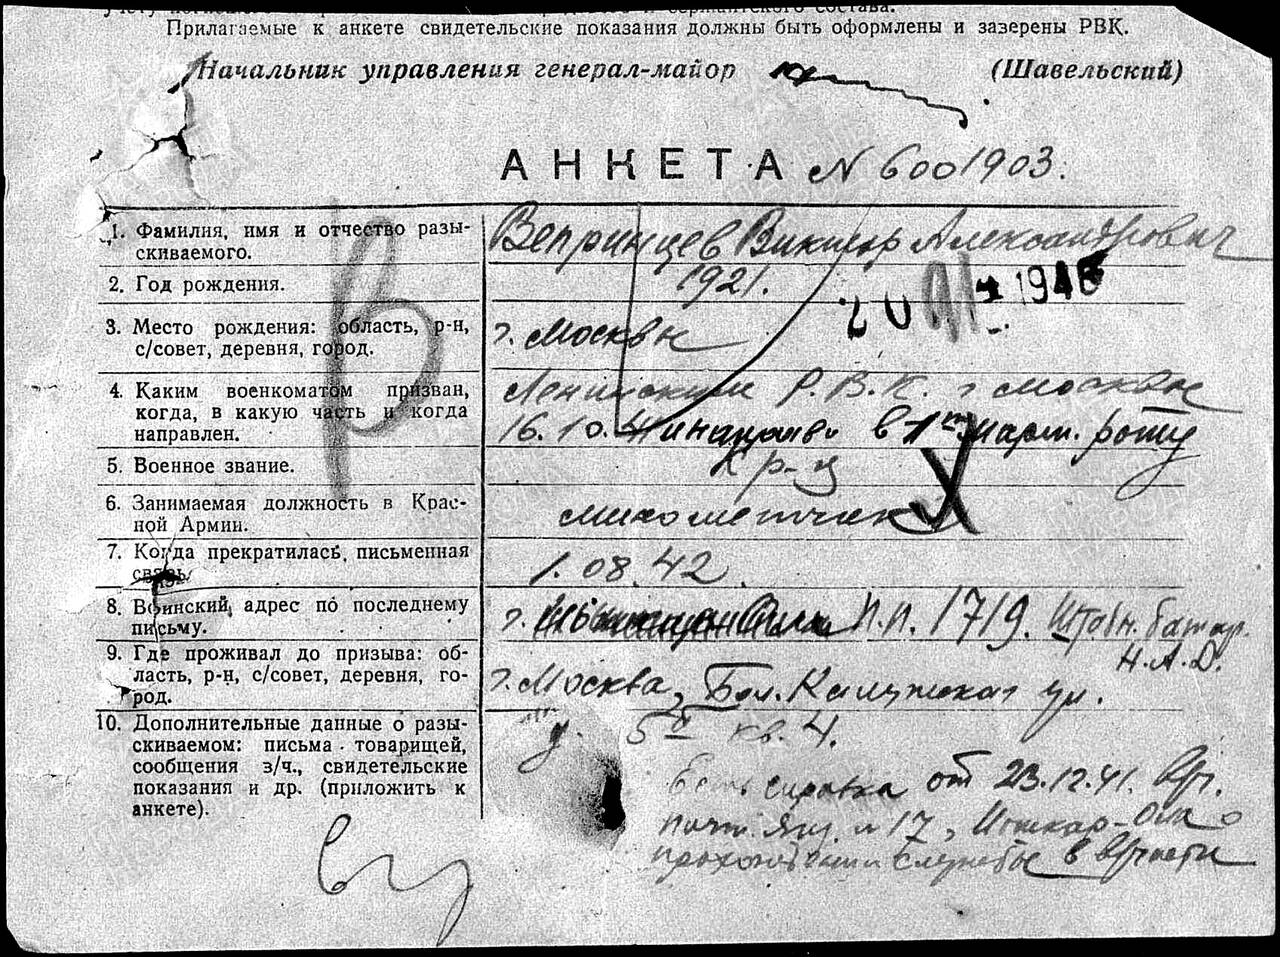 Прилагаемые к анкете свидетельские показания должны быть оформлены и зазерены РВК.
Начальник управления генерал-майор (Шавельский)
АНКЕТА N 6001903.
1. Фамилия, имя и отчество разы-
скиваемого.
Вепринцев Виктор Александрович
2. Год рождения.
1921.
20 1946
3. Место рождения: область, р-н,
с/совет, деревня, город.
г. Москвы
4. Каким военкоматом призван,
когда, в какую часть и когда
направлен.
Ленинским Р.В.К. г. Москвы
16.10.41 и направлен в 1ую марш. роту
5. Военное звание.
кр-ц
6. Занимаемая должность в Крас-
ной Армии.
7. Когда прекратилась письменная
связь.
1.08.42.
8. Воинский адрес по последнему
письму.
г. П.П. 1719. Штабн. батар.
Н.А.Д.
9. Где проживал до призыва: об-
ласть, р-н, с/совет, деревня, го-
род.
г. Москва, Бол. Калужская ул.
д. 5а кв. 4.
10. Дополнительные данные о разы-
скиваемом: письма товарищей,
сообщения з/ч., свидетельские
показания и др. (приложить к
анкете).
Есть справка от 23.12.41. в/ч.
почт. ящ. N 17, Йошкар-Ола о
прохождении службы в в/части